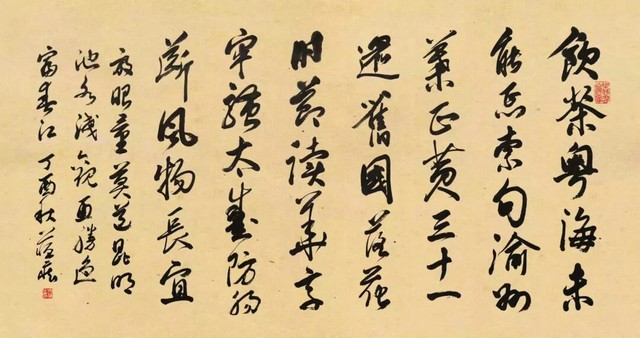 飲茶粤海未
能忘索句渝州
葉正黄三十一
還舊國落花
時節讀華章
牢騷太盛防腸
斷風物長宜
放眼量莫道昆明
池水淺觀魚勝過
富春江 丁酉秋